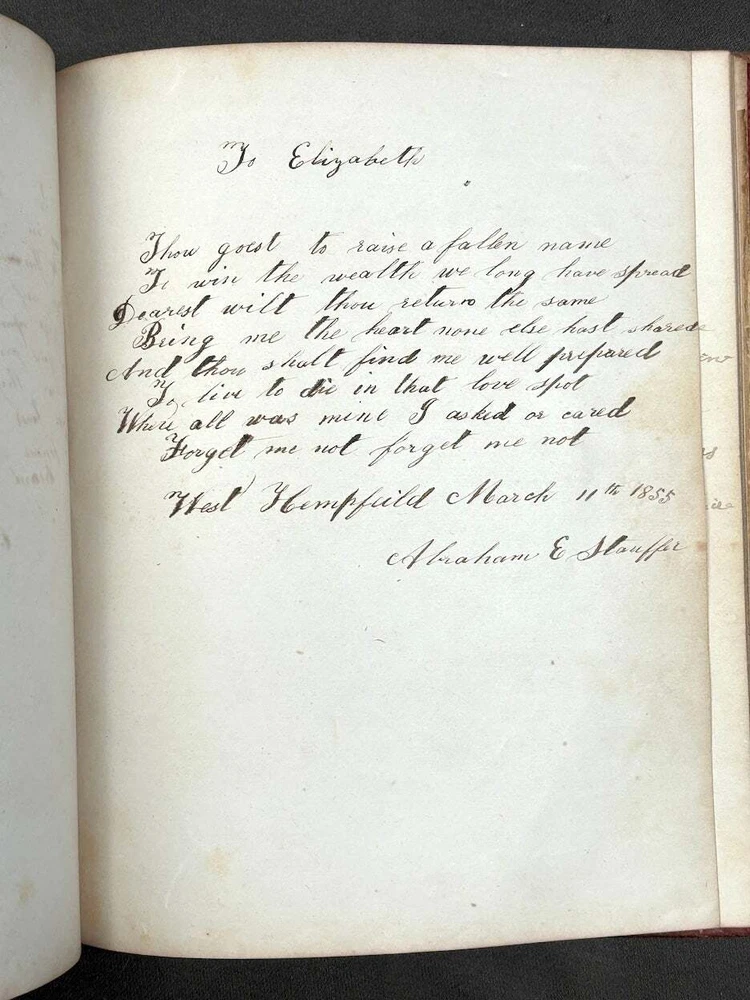 To Elizabeth
Thou goest to raise a fallen name
To win the wealth we long have spread
Dearest wilt thou return the same
Bring me the heart none else hast shared
And thou shalt find me well prepared
To live to die in that love spot
Where all was mine I asked or cared
Forget me not forget me not
West Hempfield March 11th 1855
Abraham E Stauffer